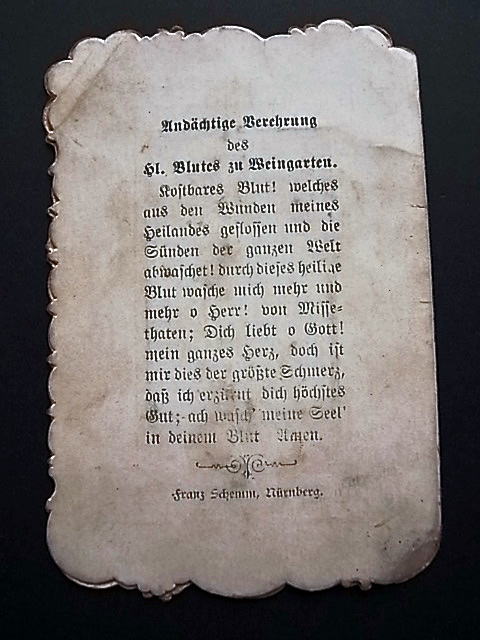 Andächtige Verehrung
des
Hl. Blutes zu Weingarten.
Kostbares Blut! welches
aus den Wunden meines
Heilandes geflossen und die
Sünden der ganzen Welt
abwaschet! durch dieses heilige
Blut wasche mich mehr und
mehr o Herr! von Misse-
thaten; Dich liebt o Gott!
mein ganzes Herz, doch ist
mir dies der größte Schmerz,
daß ich erzürnt dich höchstes
Gut; ach wasch' meine Seel'
in deinem Blut Amen.
Franz Schemm, Nürnberg.